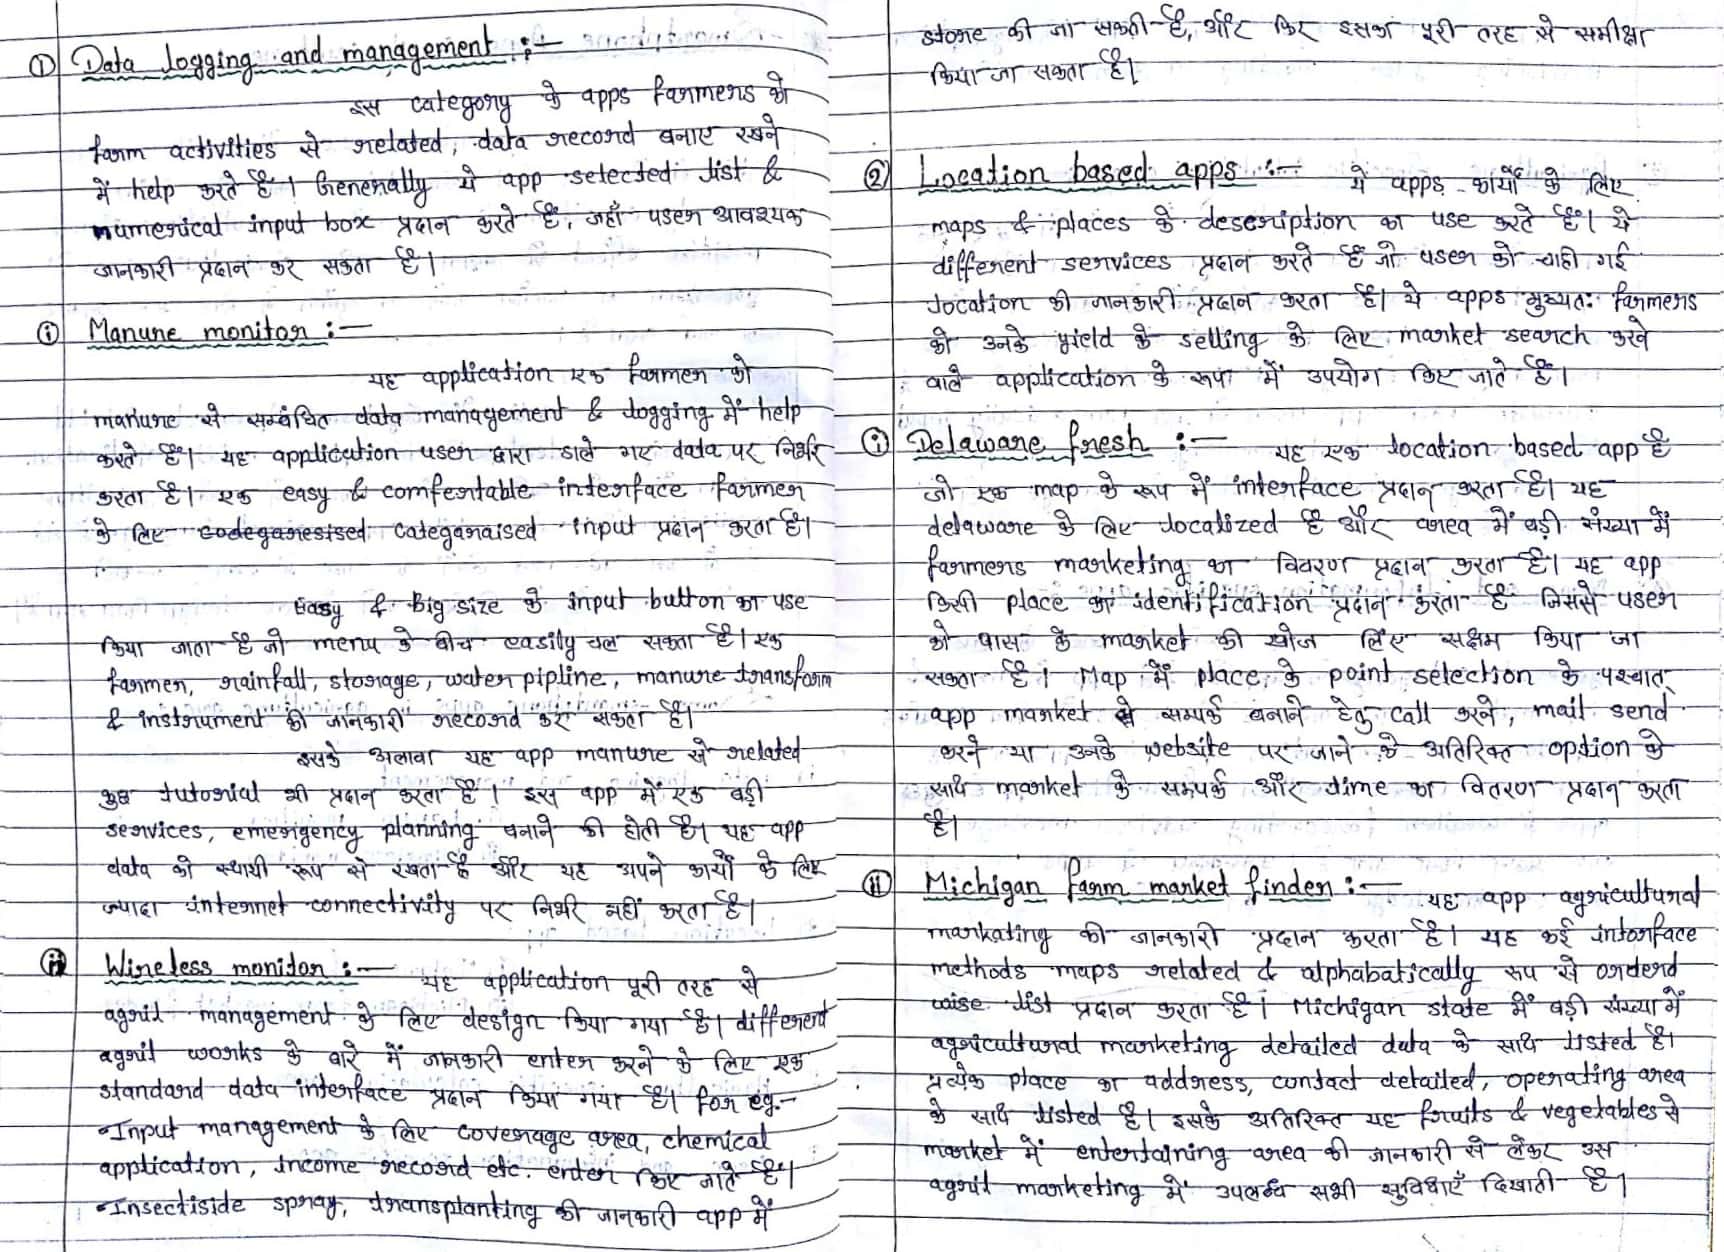 ① Data logging and management :—
इस category के apps farmers को
farm activities से related, data record बनाए रखने
में help करते हैं। Generally ये app selected list &
numerical input box प्रदान करते हैं, जहाँ user आवश्यक
जानकारी प्रदान कर सकता है।
ⓘ Manure monitor :—
यह application एक farmer को
manure से सम्बंधित data management & logging में help
करते है। यह application user द्वारा डाले गए data पर निर्भर
करता है। एक easy & comfertable interface farmer
के लिए categaraised input प्रदान करता है।
Easy & Big size के input button का use
किया जाता है जो menu के बीच easily चल सकता है। एक
farmer, rainfall, storage, water pipline, manure transform
& instrument की जानकारी record कर सकता है।
इसके अलावा यह app manure से related
कुछ tutorial भी प्रदान करता है। इस app में एक बड़ी
services, emergency planning बनाने की होती है। यह app
data को स्थायी रूप से रखता है और यह अपने कार्यों के लिए
ज्यादा internet connectivity पर निर्भर नहीं करता है।
ⓘⓘ Wireless monitor :— यह application पूरी तरह से
agril management के लिए design किया गया है। different
agril works के बारे में जानकारी enter करने के लिए एक
standard data interface प्रदान किया गया है। for eg.-
•Input management के लिए coverage area, chemical
application, income record etc. enter किए जाते है।
•Insectiside spray, transplanting की जानकारी app में
store की जा सकती है, और फिर इसका पूरी तरह से समीक्षा
किया जा सकता है।
② Location based apps :— ये apps कार्यों के लिए
maps & places के description का use करते हैं। ये
different services प्रदान करते हैं जो user को चाही गई
location की जानकारी प्रदान करता है। ये apps मुख्यतः farmers
को उनके yield के selling के लिए market search करने
वाले application के रूप में उपयोग किए जाते हैं।
ⓘ Delaware fresh :— यह एक location based app है
जो एक map के रूप में interface प्रदान करता है। यह
delaware के लिए localized है और area में बड़ी संख्या में
farmers marketing का विवरण प्रदान करता है। यह app
किसी place का identification प्रदान करता है जिससे user
को पास के market की खोज लिए सक्षम किया जा
सकता है। Map में place के point selection के पश्चात्
app market से सम्पर्क बनाने हेतु call करने, mail send
करने या उनके website पर जाने के अतिरिक्त option के
साथ market के सम्पर्क और time का वितरण प्रदान करता
है।
ⓘⓘ Michigan farm market finder :— यह app agricultural
markating की जानकारी प्रदान करता है। यह कई interface
methods maps related & alphabatically रूप से orderd
waise list प्रदान करता है। Michigan state में बड़ी संख्या में
agricultural marketing detailed data के साथ listed है।
प्रत्येक place का address, contact detailed, operating area
के साथ listed है। इसके अतिरिक्त यह fruits & vegetables से
market में entertaining area की जानकारी से लेकर उस
agril marketing में उपलब्ध सभी सुविधाएँ दिखाती है।